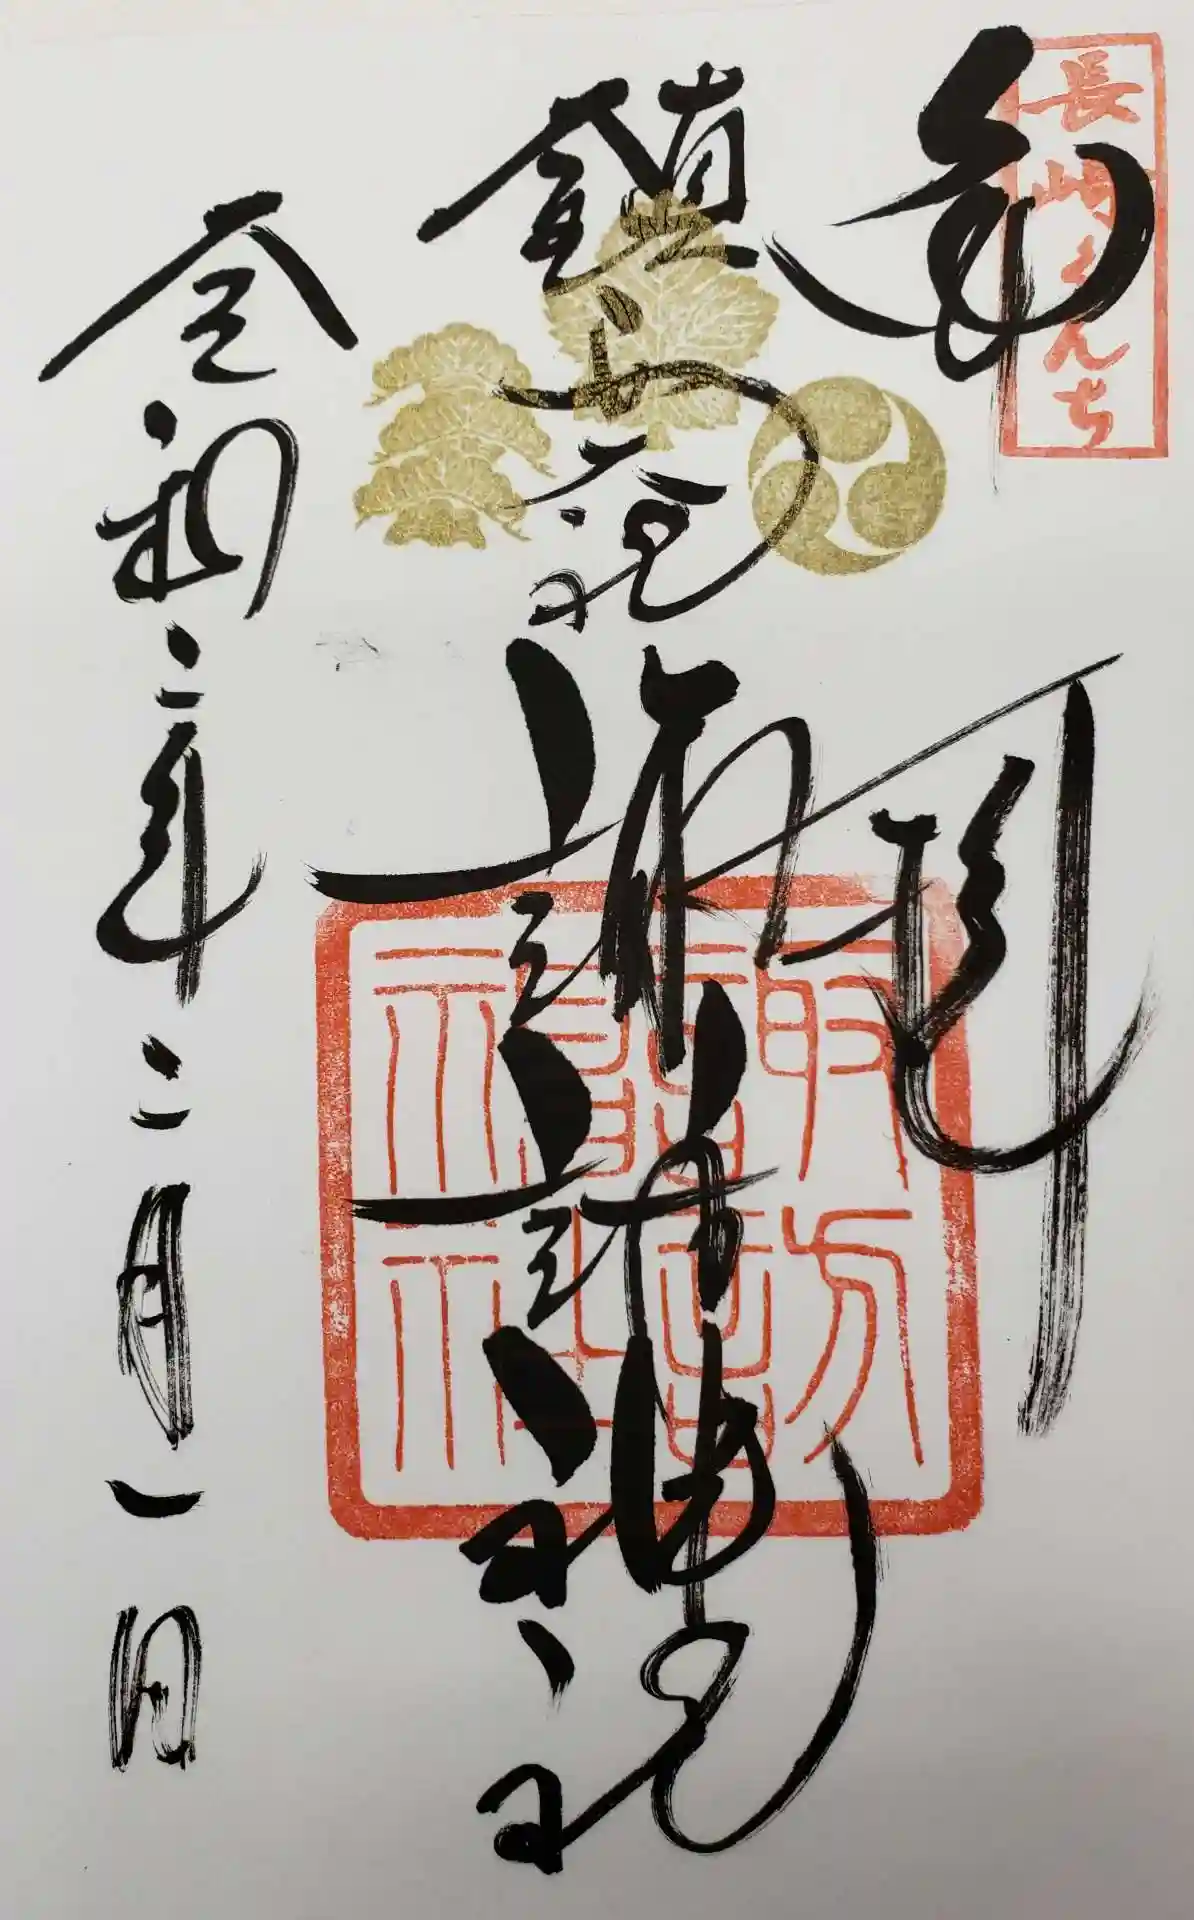 長崎くんち
奉拝
鎮西大社
諏訪神社
諏訪神社
令和二年二月一日